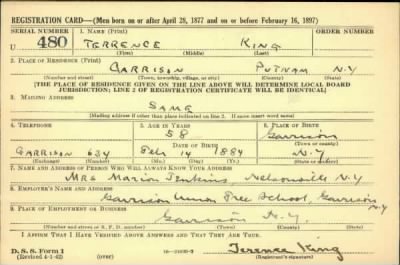 REGISTRATION CARD—(Men born on or after April 28, 1877 and on or before February 16, 1897)
SERIAL NUMBER 1. NAME (Print)
U 480 TERRENCE KING
(First) (Middle) (Last)
2. PLACE OF RESIDENCE (Print)
GARRISON PUTNAM N.Y
(Number and street) (Town, township, village, or city) (County) (State)
[THE PLACE OF RESIDENCE GIVEN ON THE LINE ABOVE WILL DETERMINE LOCAL BOARD
JURISDICTION; LINE 2 OF REGISTRATION CERTIFICATE WILL BE IDENTICAL]
3. MAILING ADDRESS
SAME
[Mailing address if other than place indicated on line 2. If same insert word same]
4. TELEPHONE 5. AGE IN YEARS 6. PLACE OF BIRTH
58 Garrison
DATE OF BIRTH (Town or county)
GARRISON 634 Feb. 14 1884 N.Y
(Exchange) (Number) (Mo.) (Day) (Yr.) (State or country)
7. NAME AND ADDRESS OF PERSON WHO WILL ALWAYS KNOW YOUR ADDRESS
MRS Marion Jenkins, Nelsonville N.Y
8. EMPLOYER'S NAME AND ADDRESS
Garrison Union Free School, Garrison N.Y
9. PLACE OF EMPLOYMENT OR BUSINESS
Garrison N.Y.
(Number and street or R. F. D. number) (Town) (County) (State)
I AFFIRM THAT I HAVE VERIFIED ABOVE ANSWERS AND THAT THEY ARE TRUE.
D. S. S. Form 1
(Revised 4-1-42) (over)
Terence King
(Registrant's signature)